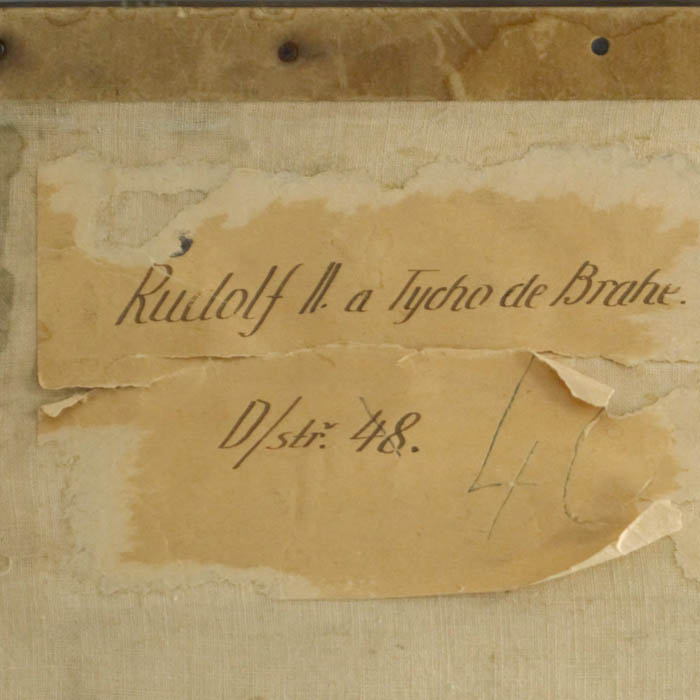 Rudolf II. a Tycho de Brahe.
D/stř. 48.
4